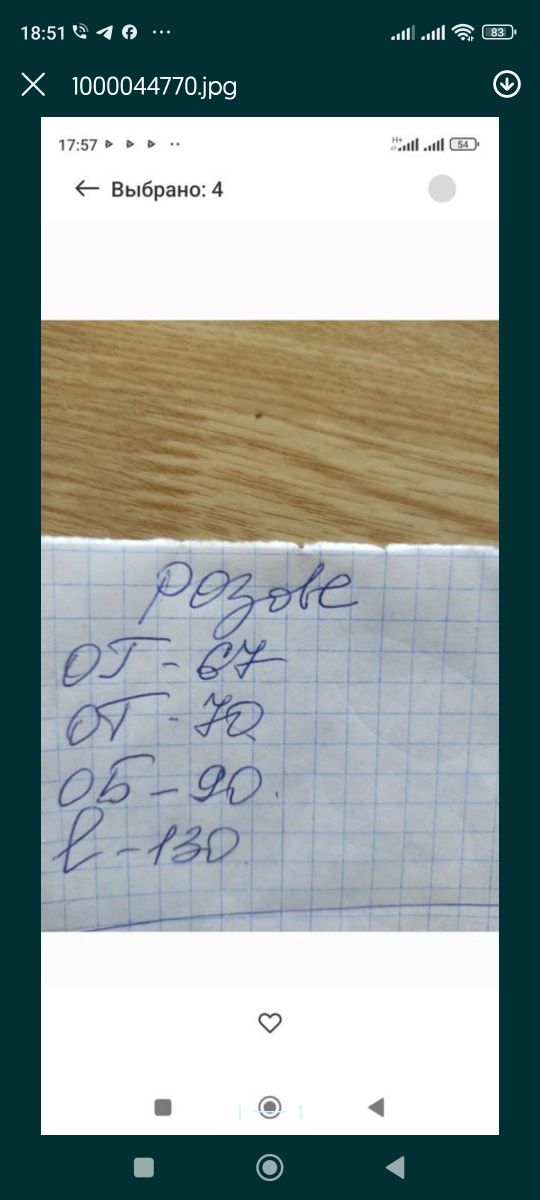 18:51 ... 83
1000044770.jpg
17:57 H+ 54
← Выбрано: 4
розове
ОГ - 67
ОТ - 70
ОБ - 90.
l - 130